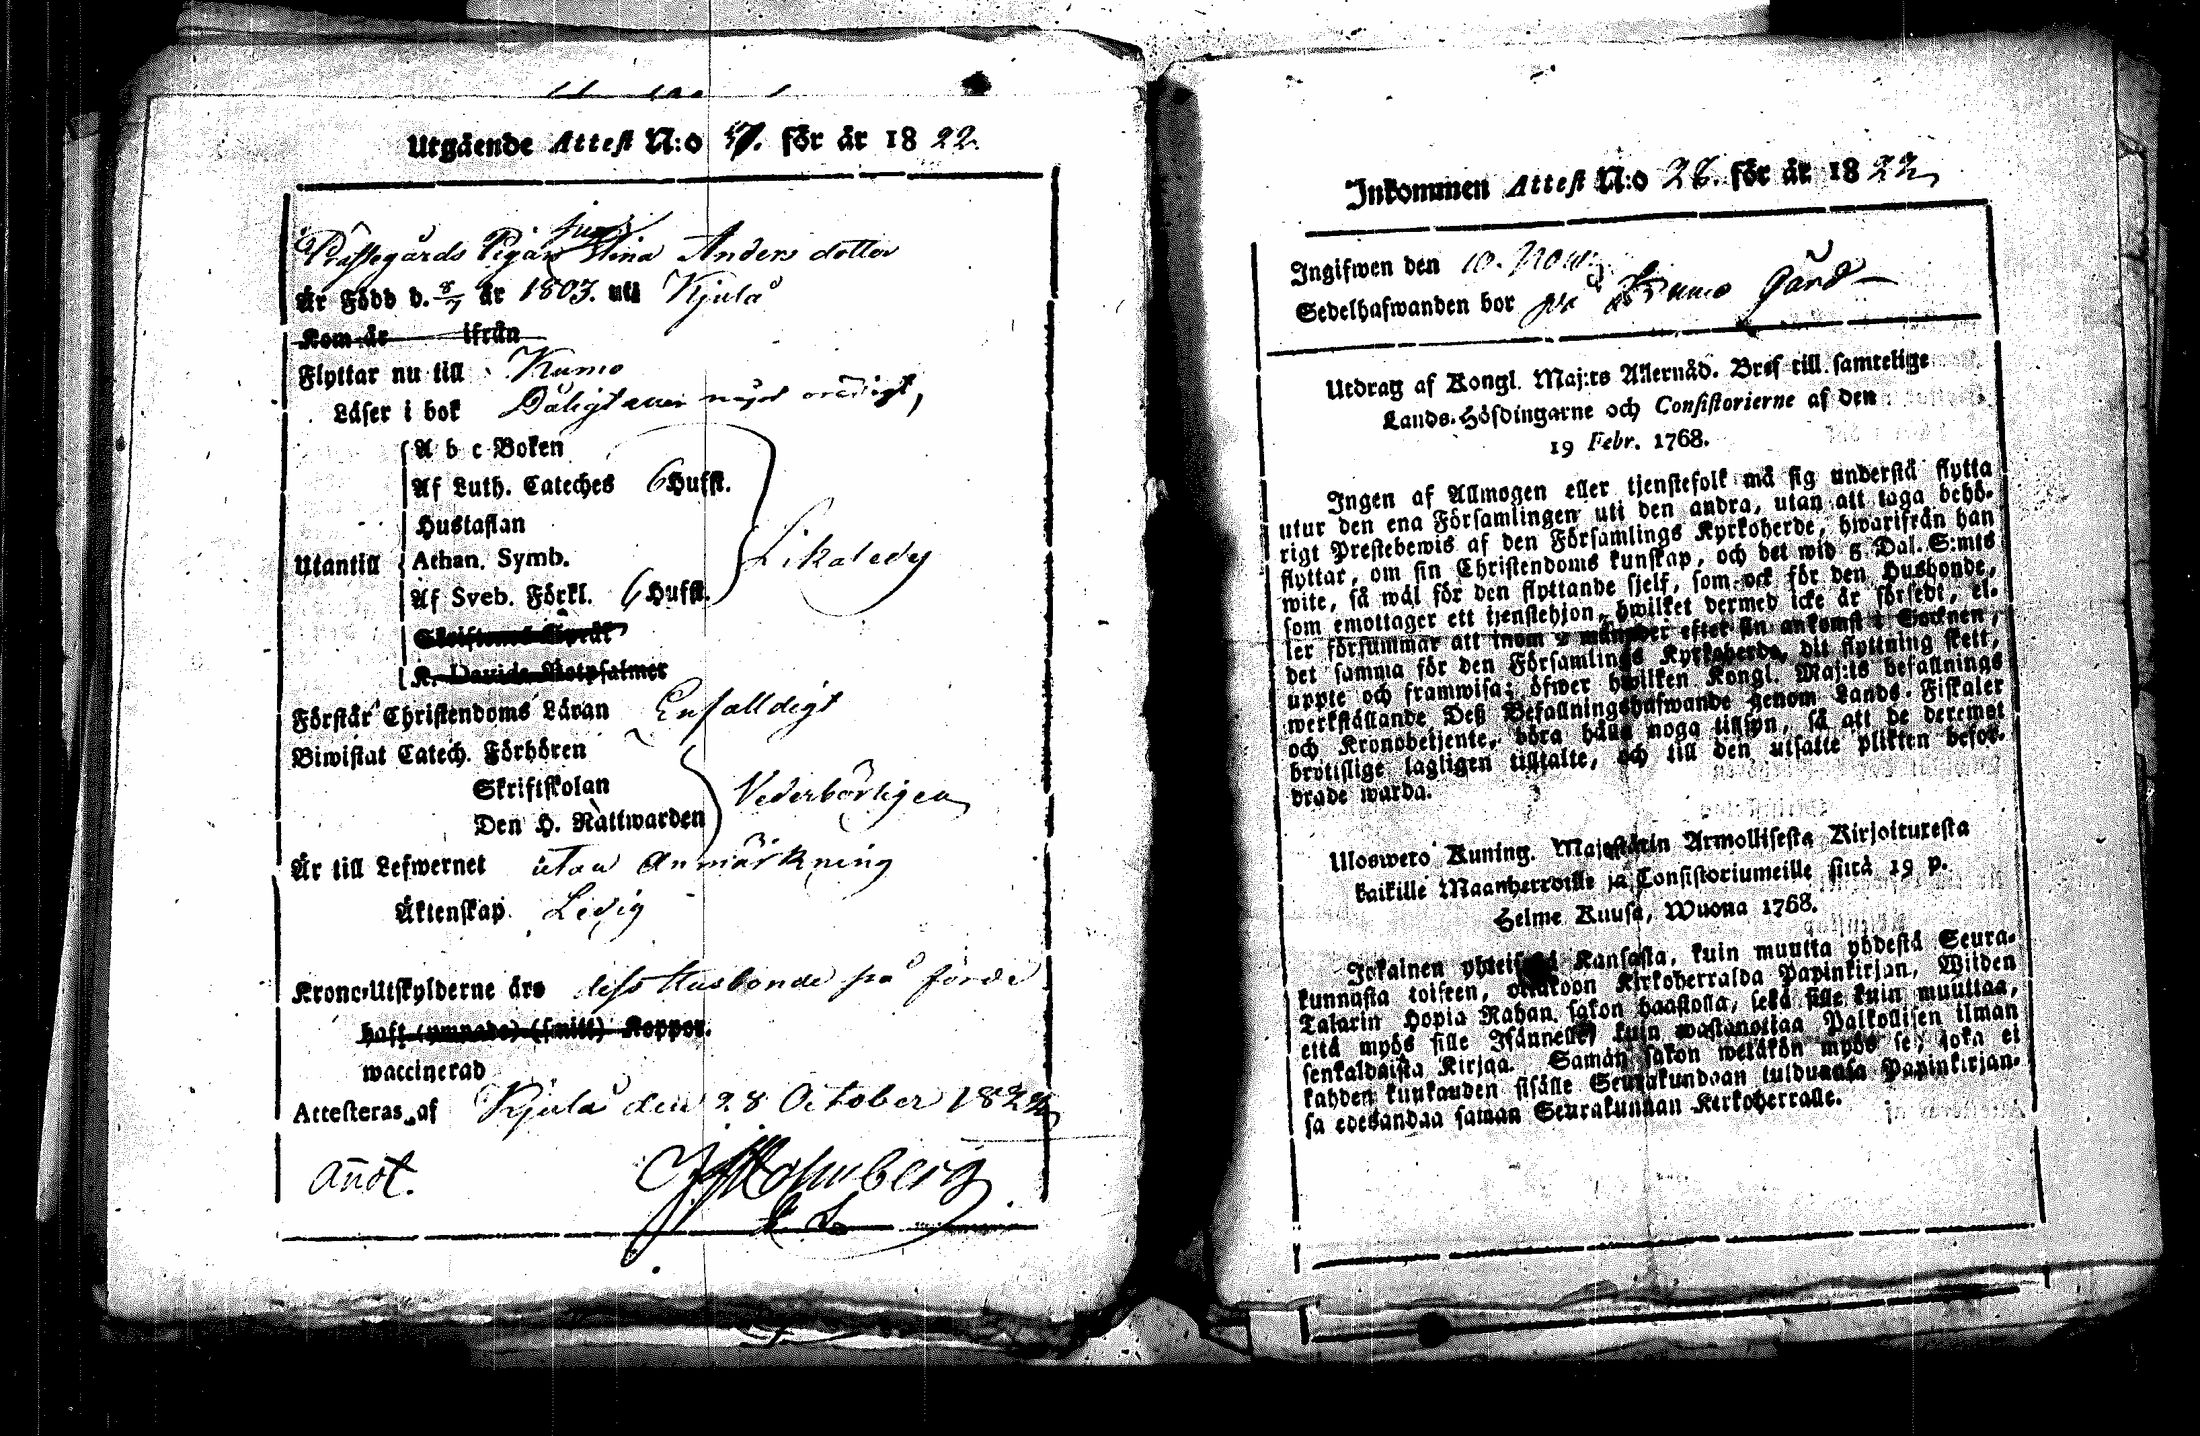 Utgående Attest N:o 57. för år 1822.
Prästegårds Pigan Stina Anders dotter
Är Född d. 8/7 år 1803. uti Kjulå
Kom år ifrån
Flyttar nu till Kumo
Läser i bok Dåligt något
A b c Boken
Af Luth. Cateches 6 Hufst.
Hustaflan
Utantill Athan. Symb. Likaledes
Af Sveb. Förkl. 6 Hufst.
Skriftenes Språk
K. Davids Botpsalmer
Förstår Christendoms Läran Enfalldigt
Biwistat Catech. Förhören
Skriftskolan Vederbörligen
Den H. Nattwarden
Är till Lefwernet utan anmärkning
Äktenskap Ledig
Krono-Utskylderne äro dess Husbonde påförde
haft (ympade) (smitt) Koppor.
waccinerad
Attesteras af Kjulå den 28 October 1822
Annot.
Inkommen Attest N:o 28. för år 1822
Ingifwen den 10. Nov.
Sedelhafwanden bor på Kumo Gård
Utdrag af Kongl. Maj:ts Allernåd. Bref till samtelige
Lands-Höfdingarne och Consistorierne af den
19 Febr. 1768.
Ingen af Allmogen eller tjenstefolk må sig understå flytta
utur den ena Församlingen uti den andra, utan att taga behö-
rigt Prestebewis af den Församlings Kyrkoherde, hwarifrån han
flyttar, om sin Christendoms kunskap, och det wid 5 Dal. S:mts
wite, så wäl för den flyttande sjelf, som ock för den Husbonde,
som emottager ett tjenstehjon, hwilket dermed icke är försedt, el-
ler försummar att inom 2 månader efter sin ankomst i Socknen,
det samma för den Församlings Kyrkoherde, dit flyttning skett,
uppte och framwisa; öfwer hwilken Kongl. Maj:ts befallnings
werkställande Deß Befallningshafwande genom Lands-Fiskaler
och Kronobetjente, böra hålla noga tillsyn, så att de deremot
brottslige lagligen tilltalte, och till den utsatte plikten befor-
drade warda.
Uloswero Kuning. Majestätin Armollisesta Kirjoituresta
kaikille Maanherroille ja Consistoriumeille siitä 19 p.
Helme Kuusa, Wuona 1768.
Jokainen yhteisestä Kansasta, kuin muutta yhdestä Seura-
kunnasta toiseen, ottakoon Kirkoherralda Papinkirjan, Wiiden
Talarin Hopia Rahan sakon haastolla, sekä sille kuin muuttaa,
että myös sille Isännelle, kuin wastanottaa Palkollisen ilman
senkaldaista Kirjaa. Saman sakon wetäkön myös se, joka ei
kahden kuukauden sisälle Seurakundaan tulduansa Papinkirjan-
sa edesandaa saman Seurakunnan Kirkoherralle.